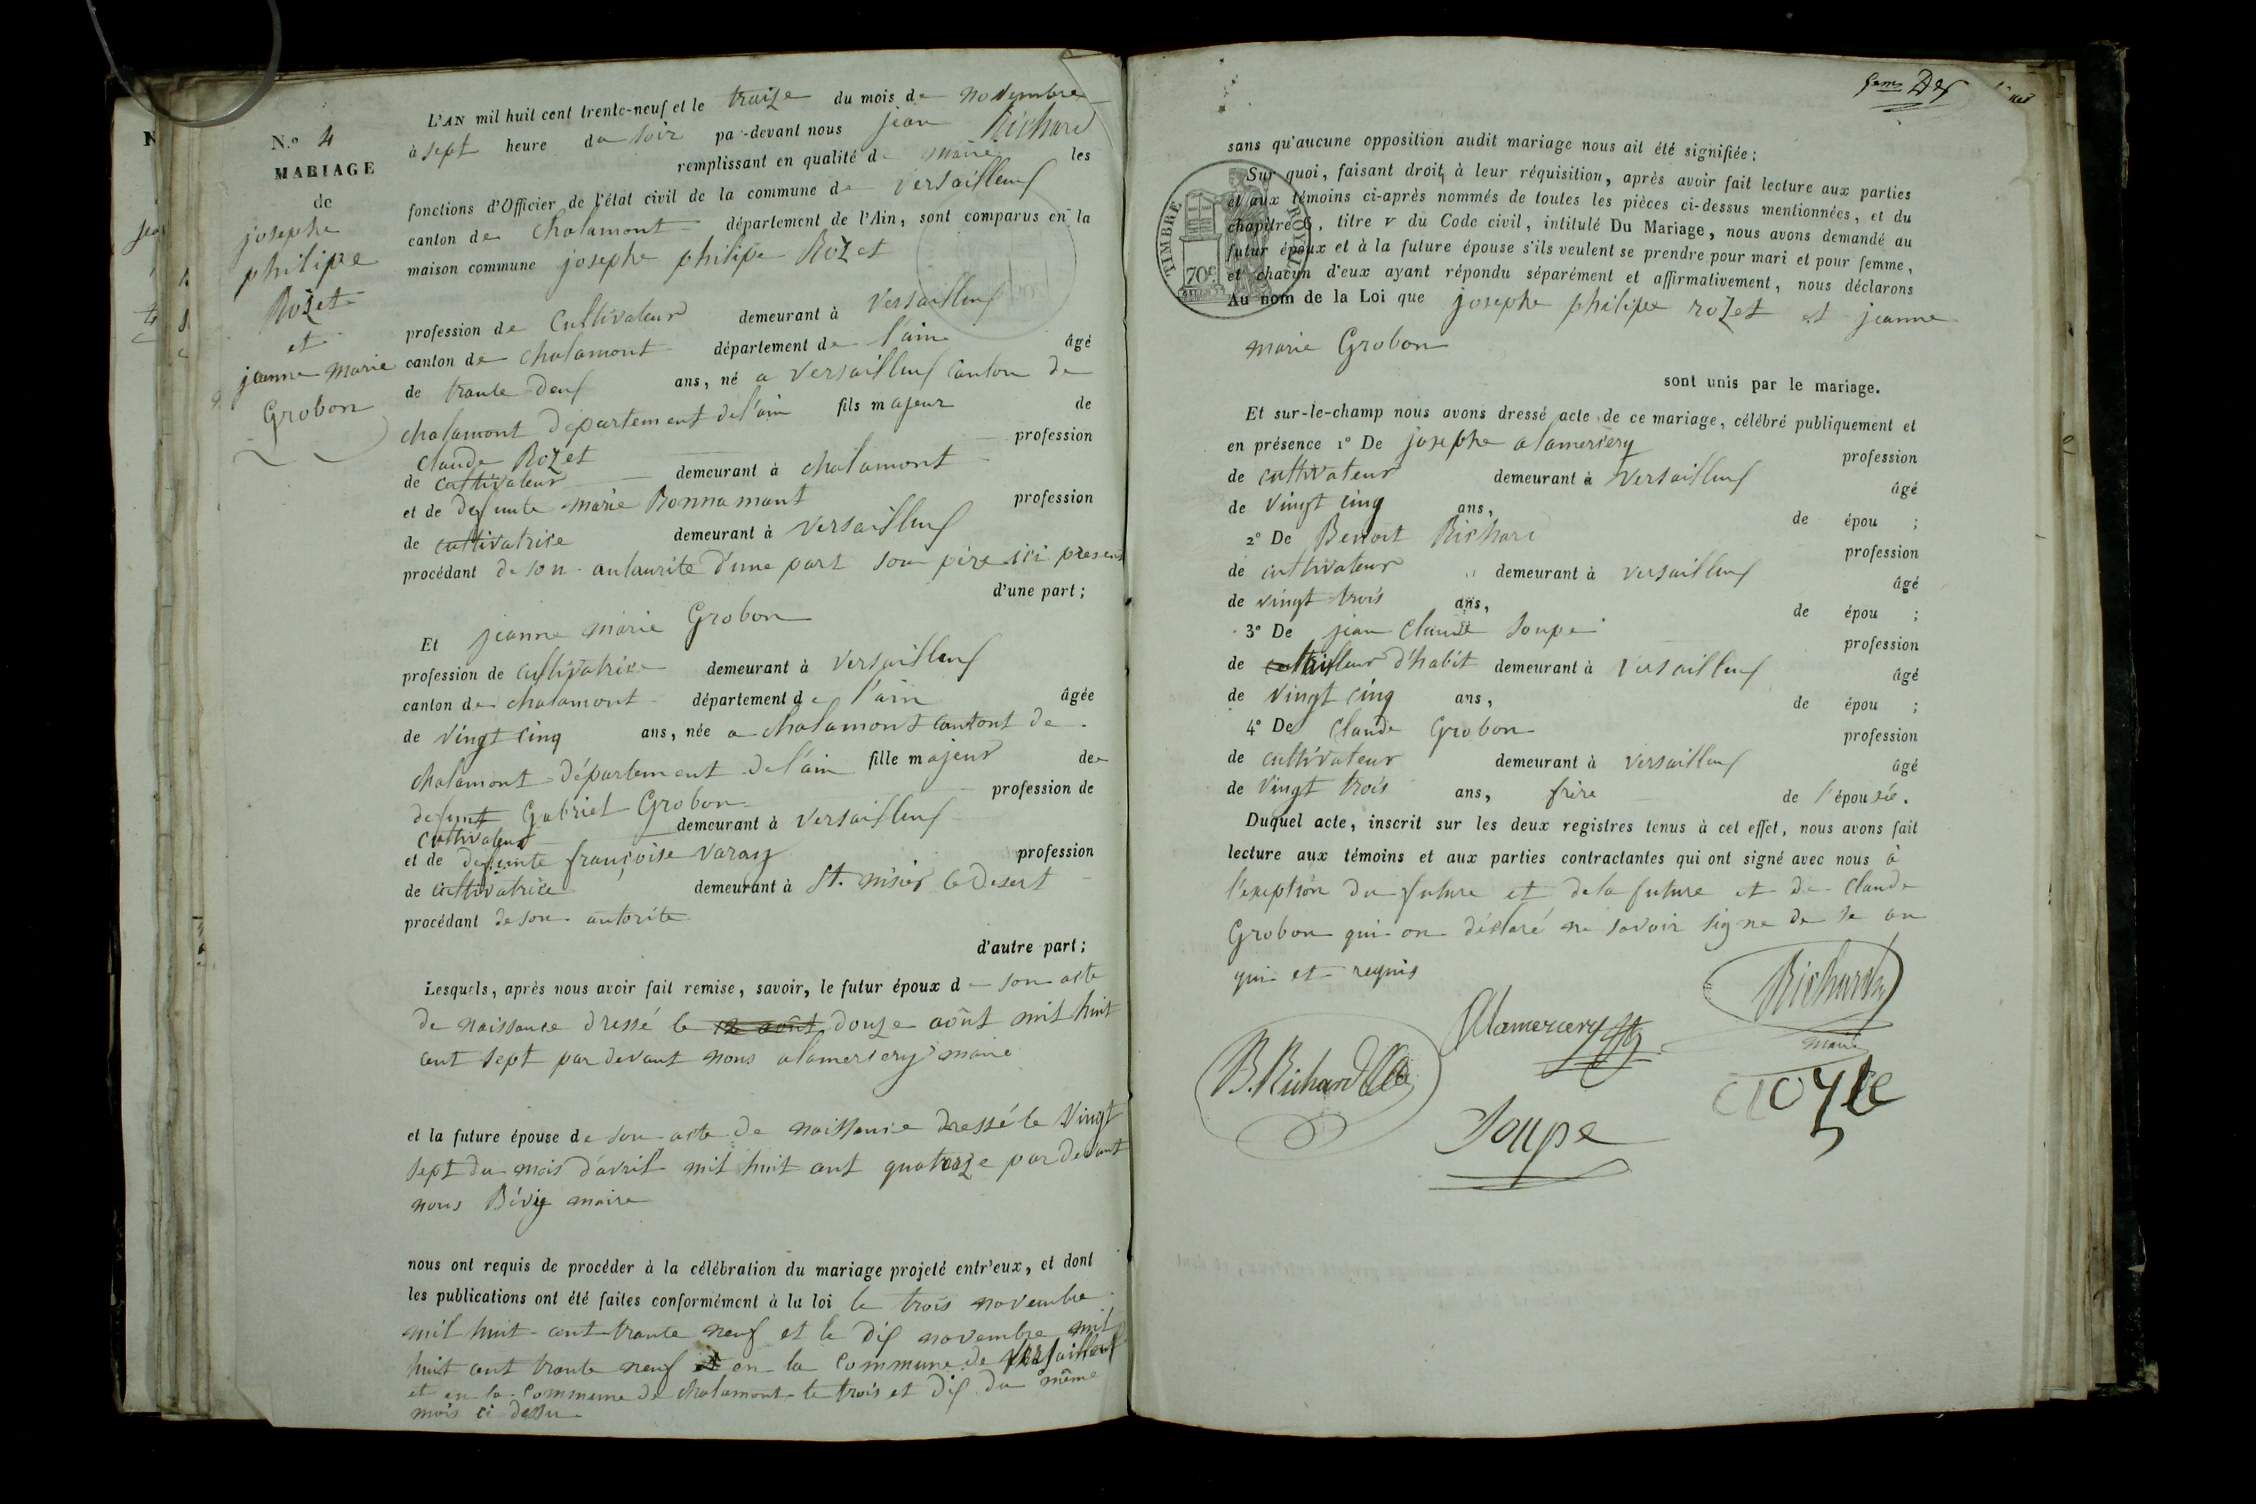 N.º 4
MARIAGE
de
josephe
philipe
Rozet
et
jeanne marie
Grobon
L'AN mil huit cent trente-neuf et le traize du mois de novembre
à sept heure du soir par-devant nous jean Richard
remplissant en qualité de maire les
fonctions d'Officier de l'état civil de la commune de versaillieux
canton de chalamont département de l'Ain, sont comparus en la
maison commune josephe philipe Rozet
profession de Cultivateur demeurant à versaillieux
canton de chalamont département de l'ain âgé
de trante deux ans, né a versaillieux Canton de
chalamont département de l'ain fils majeur de
Claude Rozet profession
de cultivateur demeurant à chalamont
et de defunte marie Bonnamant profession
de cultivatrice demeurant à versaillieux
procédant de son autaurite d'une part son père ici present
d'une part;
Et jeanne marie Grobon
profession de cultivatrice demeurant à versaillieux
canton de chalamont département de l'ain âgée
de vingt cinq ans, née a chalamont Cantont de
chalamont département de l'ain fille majeur de
defunt Gabriel Grobon profession de
Cultivateur demeurant à versaillieux
et de defunte françoise varay profession
de cultivatrice demeurant à St. nisier le Desert
procédant de son autorite
d'autre part;
Lesquels, après nous avoir fait remise, savoir, le futur époux de son acte
de naissance dressé le 12 août douze août mil huit
cent sept par devant nous alamercery maire
et la future épouse de son acte de naissance dressé le vingt
sept du mois d'avril mil huit cent quatorze par devant
nous Bévy maire
nous ont requis de procéder à la célébration du mariage projeté entr'eux, et dont
les publications ont été faites conformément à la loi le trois novembre
mil huit cent trante neuf et le dix novembre mil
huit cent trante neuf en la Commune de versaillieux
et en la Commune de chalamont le trois et dix du même
mois ci dessu
sans qu'aucune opposition audit mariage nous ait été signifiée;
Sur quoi, faisant droit à leur réquisition, après avoir fait lecture aux parties
et aux témoins ci-après nommés de toutes les pièces ci-dessus mentionnées, et du
chapitre 6, titre v du Code civil, intitulé Du Mariage, nous avons demandé au
futur époux et à la future épouse s'ils veulent se prendre pour mari et pour femme,
et chacun d'eux ayant répondu séparément et affirmativement, nous déclarons
Au nom de la Loi que josephe philipe rozet et jeanne
marie Grobon
sont unis par le mariage.
TIMBRE ROYAL
70c
Et sur-le-champ nous avons dressé acte de ce mariage, célébré publiquement et
en présence 1º De josephe alamercery profession
de cultivateur demeurant à versaillieux âgé
de vingt cinq ans, de épou ;
2º De Benoit Richard profession
de cultivateur demeurant à versaillieux âgé
de vingt trois ans, de épou ;
3º De jean Claude Soupe profession
de tailleur d'habit demeurant à versaillieux âgé
de vingt cinq ans, de épou ;
4º De Claude Grobon profession
de cultivateur demeurant à versaillieux âgé
de vingt trois ans, frère de l'épousée.
Duquel acte, inscrit sur les deux registres tenus à cet effet, nous avons fait
lecture aux témoins et aux parties contractantes qui ont signé avec nous à
l'exeption du future et de la future et de Claude
Grobon qui on déclaré ne savoir signe de se en
qui et requis
Richard
maire
Alamercery
B. Richard
Soupe